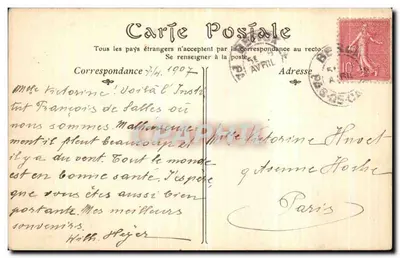 Carte Postale
Tous les pays étrangers n'acceptent pas la correspondance au recto.
Se renseigner à la poste.
Correspondance
Adresse
7/4 1907
AVRIL
PAS-DE-CA
Melle Victorine! Voilà l'Insti
tut François de Salles où
nous sommes. Malheureuse-
ment il pleut beaucoup et
il y a du vent. Tout le monde
est en bonne santé. J'espère
que vous êtes aussi bien
portante. Mes meilleurs
souvenirs.
Wilh. Heyer
Melle Victorine Huvet
9 Avenue Hoche
Paris